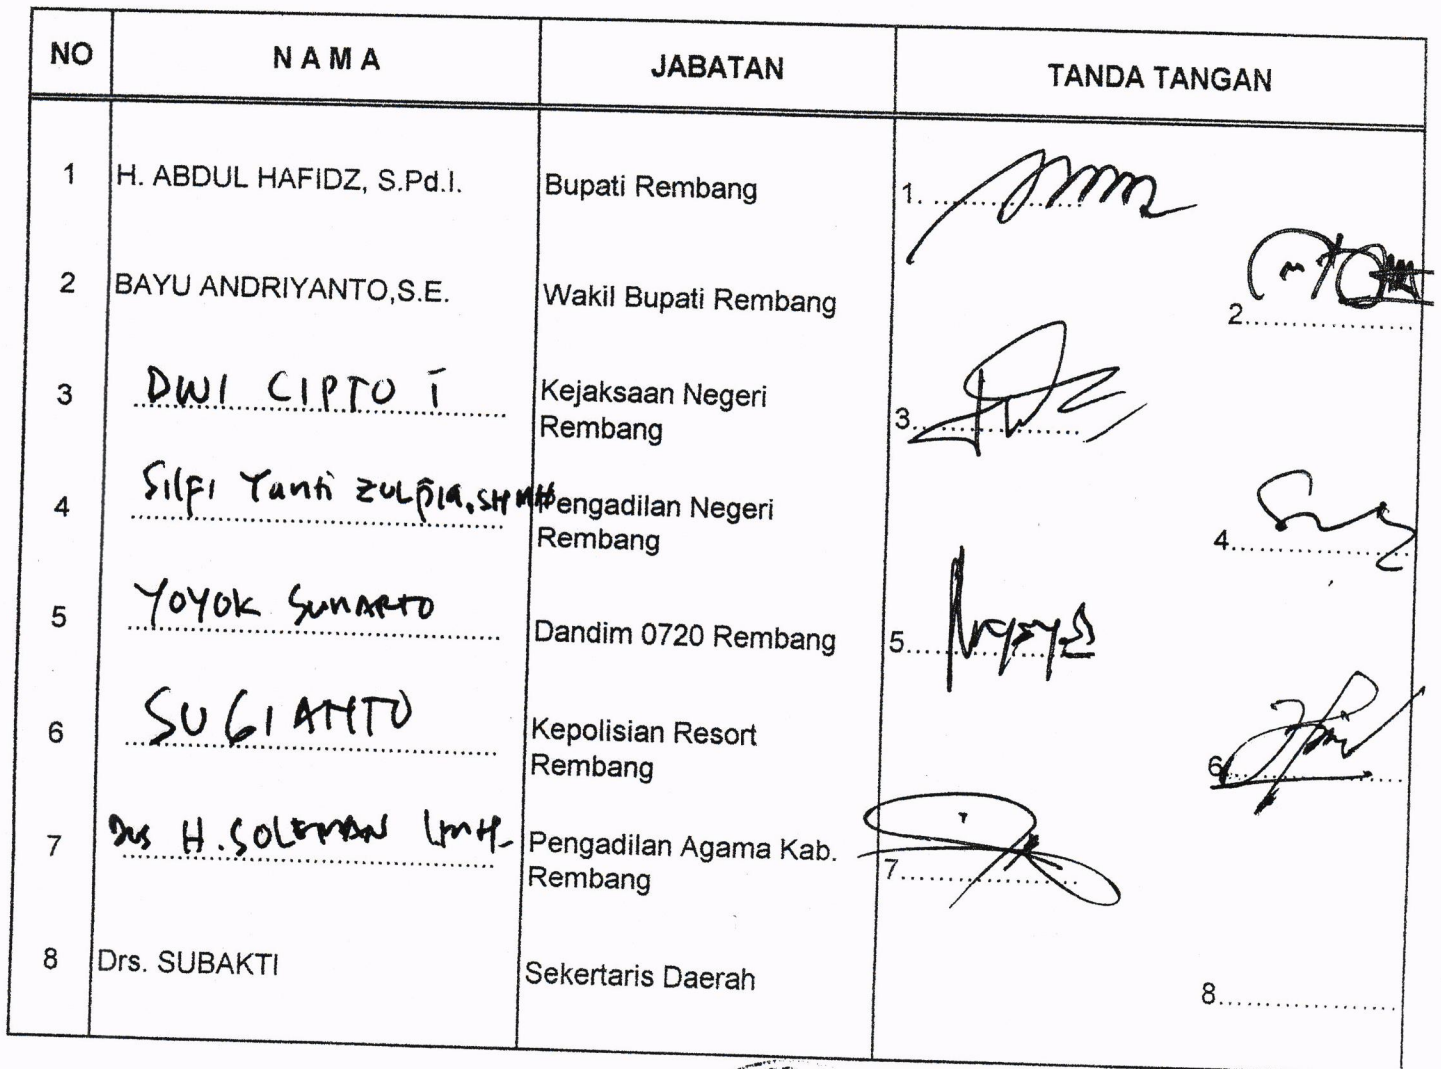 NO NAMA JABATAN TANDA TANGAN
1 H. ABDUL HAFIDZ, S.Pd.I. Bupati Rembang 1.
2 BAYU ANDRIYANTO,S.E. Wakil Bupati Rembang 2.
3 DWI CIPTO Kejaksaan Negeri 3.
Rembang
4 Silfi Yanti ZULPIA.SH MH Pengadilan Negeri 4.
Rembang
5 YOYOK SUNARTO Dandim 0720 Rembang 5.
6 SUGIANTO Kepolisian Resort 6.
Rembang
7 Drs H. SOLEMAN Pengadilan Agama Kab. 7.
Rembang
8 Drs. SUBAKTI Sekertaris Daerah 8.